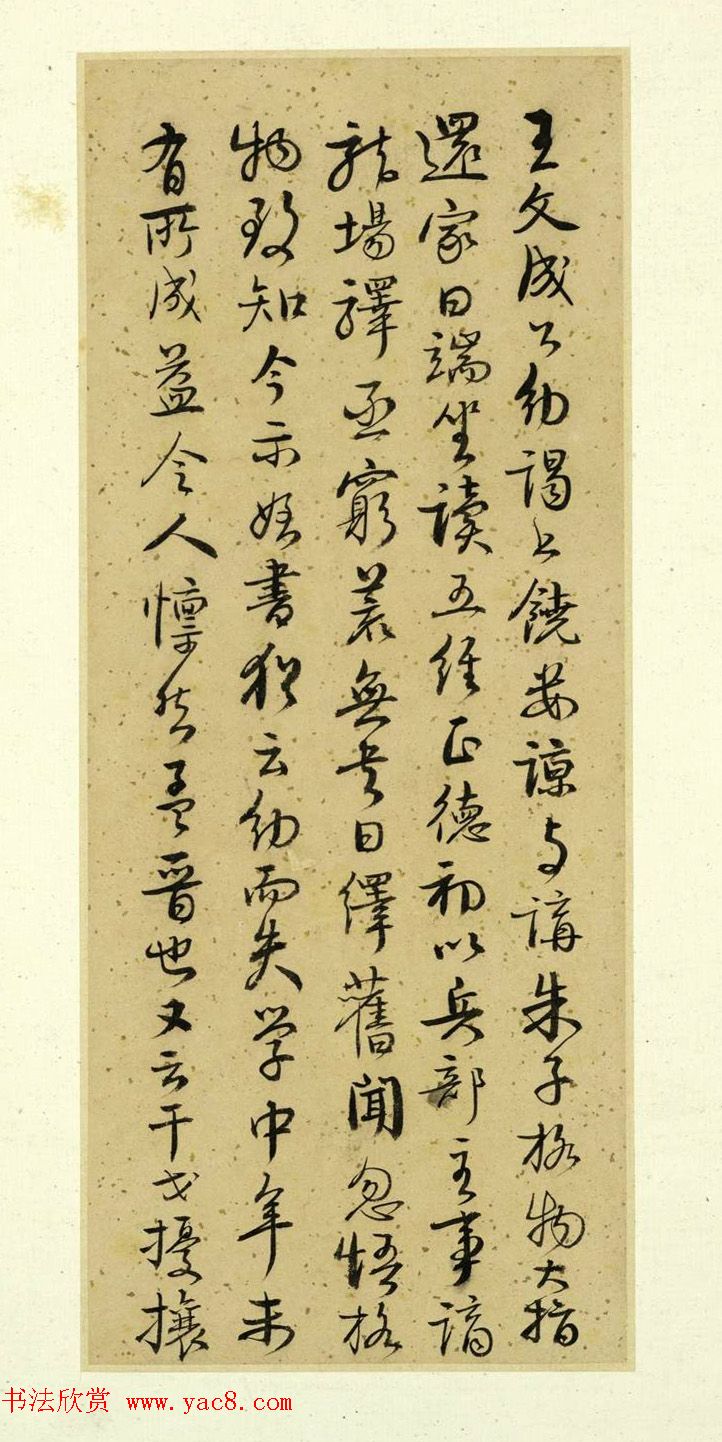 王文成公幼謁上饒婁諒与講朱子格物大指
還家日端坐讀五經正德初以兵部主事謫
龍場驛丞窮荒無书日繹舊聞忽悟格
物致知今示姪書猶云幼而失学中年未
有所成益令人懍然孟晋也又云干戈擾攘
书法欣赏 www.yac8.com